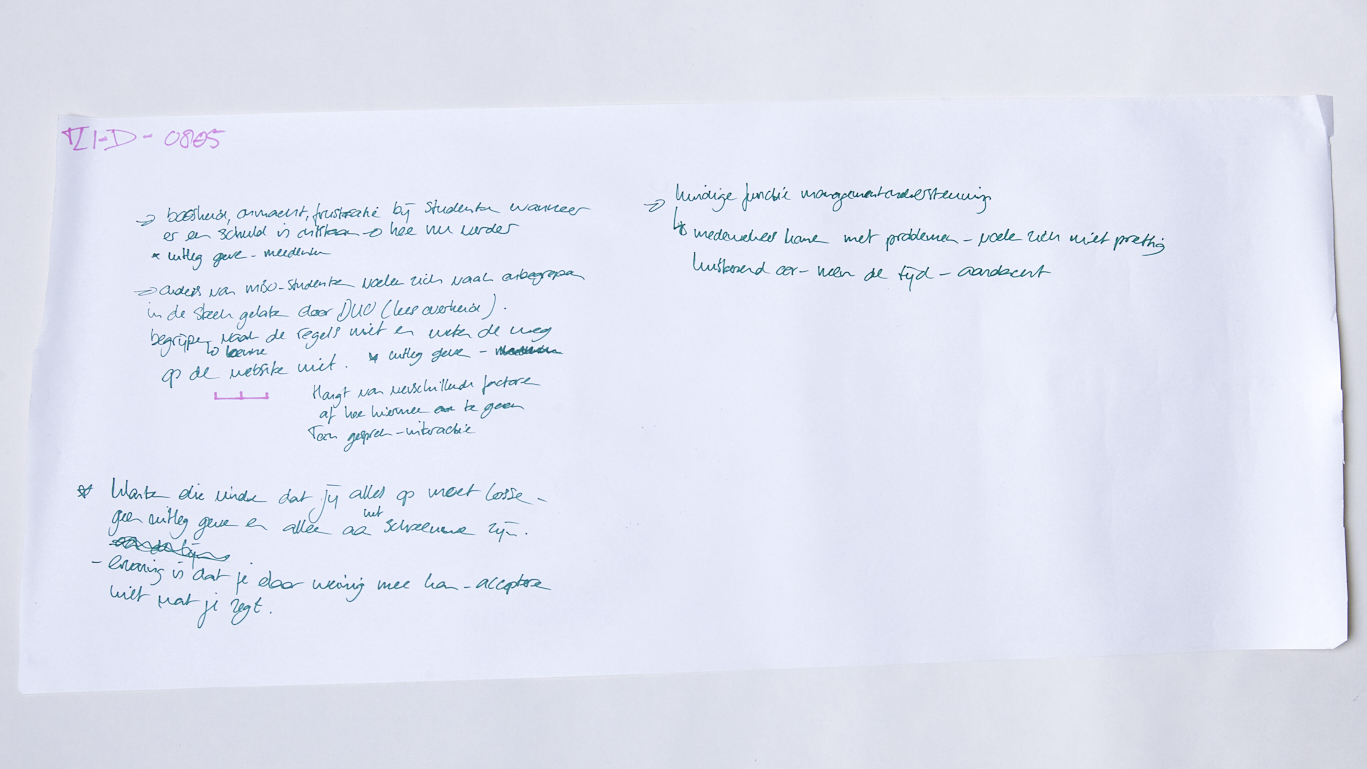 TZ1-D-0805
→ boosheid, onmacht, frustratie bij studenten wanneer
er een schuld is ontstaan → hoe nu verder
* uitleg geven - meedenken
→ ouders van mbo-studenten voelen zich vaak onbegrepen
in de steek gelaten door DUO (lees overheid).
begrijpen vaak de regels niet en weten de weg
op de website niet. * uitleg geven -
Hangt van verschillende factoren
af hoe hiermee om te gaan
Toon gesprek - interactie
* Klanten die vinden dat jij alles op moet lossen -
geen uitleg geven en alleen aan het schreeuwen zijn.
- ervaring is dat je daar weinig mee kan - accepteren
niet wat je zegt.
→ huidige functie managementondersteuning
↳ medewerkers komen met problemen - voelen zich niet prettig
luisterend oor - neem de tijd - aandacht